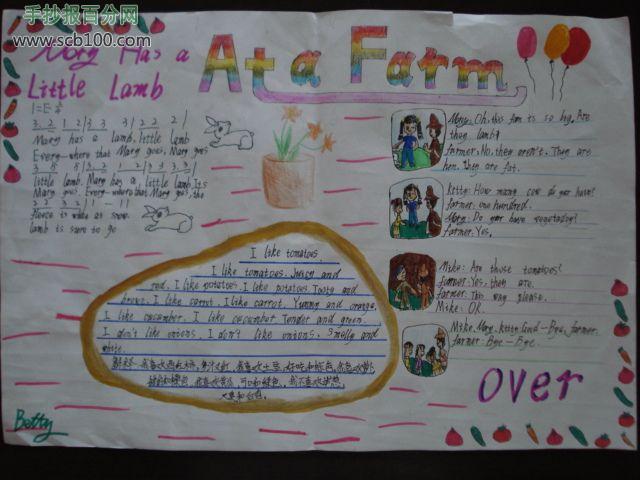 手抄报百分网
www.scb100.com
Mary Has a
Little Lamb
At a Farm
1=E 2/4
3. 2 1 2 3 3 3 2 2 2
Mary has a lamb, little lamb
Every-where that Mary goes, Mary goes
little lamb. Mary has a little lamb Its
Mary goes, Every-where that Mary goes, the
fleece is white as snow.
lamb is sure to go
I like tomatoes.
I like tomatoes. Juicy and
red. I like potatoes. I like potatoes. Tasty and
brown. I like carrot. I like carrot. Yummy and orange.
I like cucumber. I like cucumber Tender and green.
I don't like onions. I don't like onions. Smelly and
white.
Mary: Oh, this farm is so big. Are
they lambs?
farmer: No, they aren't. They are
hen. They are fat.
Kitty: How many cow do you have?
farmer: one hundred.
Mary: Do you have vegetables?
farmer: Yes.
Mike: Are those tomatoes?
farmer: Yes, they are.
farmer: This way please.
Mike: OK.
Mike, Mary, Kitty: Good-Bye, farmer.
farmer: Bye-Bye.
over
Betty